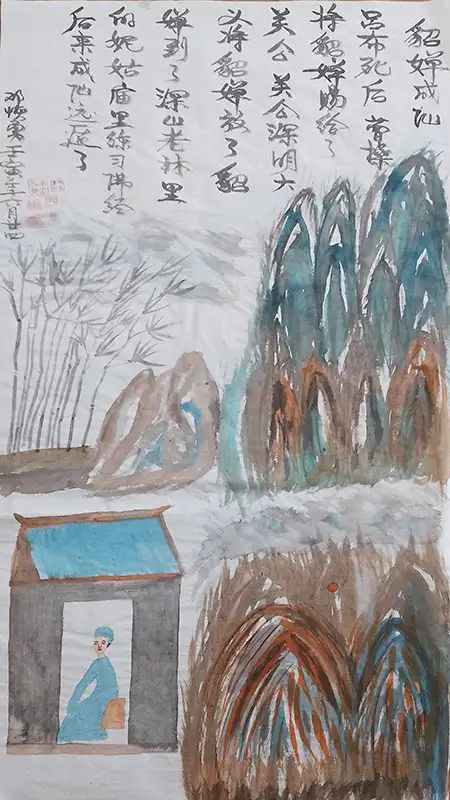 貂婵成仙
吕布死后 曹操
将貂婵赐给了
关公 关公深明大
义将貂婵放了 貂
婵到了深山老林里
的妮姑庙里练习佛经
后来成仙远了
壬寅年六月廿四